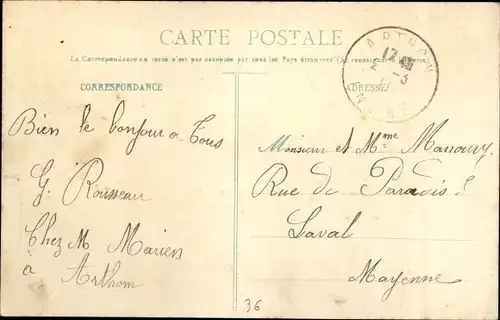 CARTE POSTALE
La Correspondance au recto n'est pas acceptée par tous les Pays étrangers (Se renseigner à la Poste)
CORRESPONDANCE
ADRESSE
ARTHON
Bien le bonjour a Tous
G. Rousseau
Chez M Marien
à
Arthon
Monsieur et Mme Manoury
Rue de Paradis
Laval
Mayenne
36